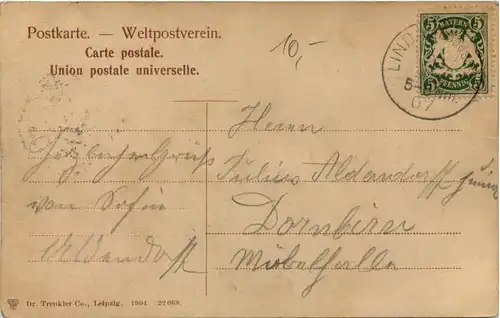 Postkarte. — Weltpostverein.
Carte postale.
Union postale universelle.
10,-
5 BAYERN 5
5 PFENNIG 5
LIND
07
Herrn
Julius Aldendorff junior
Dornbirn
von Sohn
Aldendorff
Dr. Trenkler Co., Leipzig. 1904 22 068.